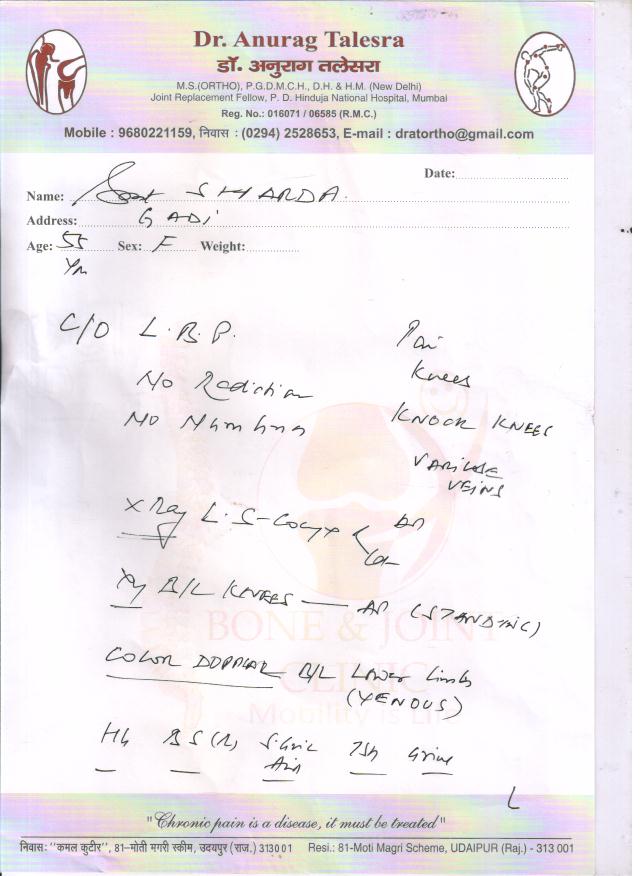 Dr. Anurag Talesra
डॉ. अनुराग तलेसरा
M.S.(ORTHO), P.G.D.M.C.H., D.H. & H.M. (New Delhi)
Joint Replacement Fellow, P. D. Hinduja National Hospital, Mumbai
Reg. No.: 016071 / 06585 (R.M.C.)
Mobile : 9680221159, निवास : (0294) 2528653, E-mail : dratortho@gmail.com
Date:
Name: SHARDA
Address: GADI
Age: 55 Sex: F Weight:
Yrs
C/O L.B.P.
Pain
Knees
No Radiation
No Numbness
KNOCK KNEES
VARICOSE
VEINS
X Ray L.S-Cocyx AP
Lat
Xy B/L KNEES — AP (STANDING)
COLOR DOPPLAR B/L Lower Limbs
(VENOUS)
BONE & JOINT
CLINIC
Mobility is Life
Hb BS(R) S.Uric TSH Urine
Acid
"Chronic pain is a disease, it must be treated"
निवासः "कमल कुटीर", 81-मोती मगरी स्कीम, उदयपुर (राज.) 313001 Resi.: 81-Moti Magri Scheme, UDAIPUR (Raj.) - 313 001